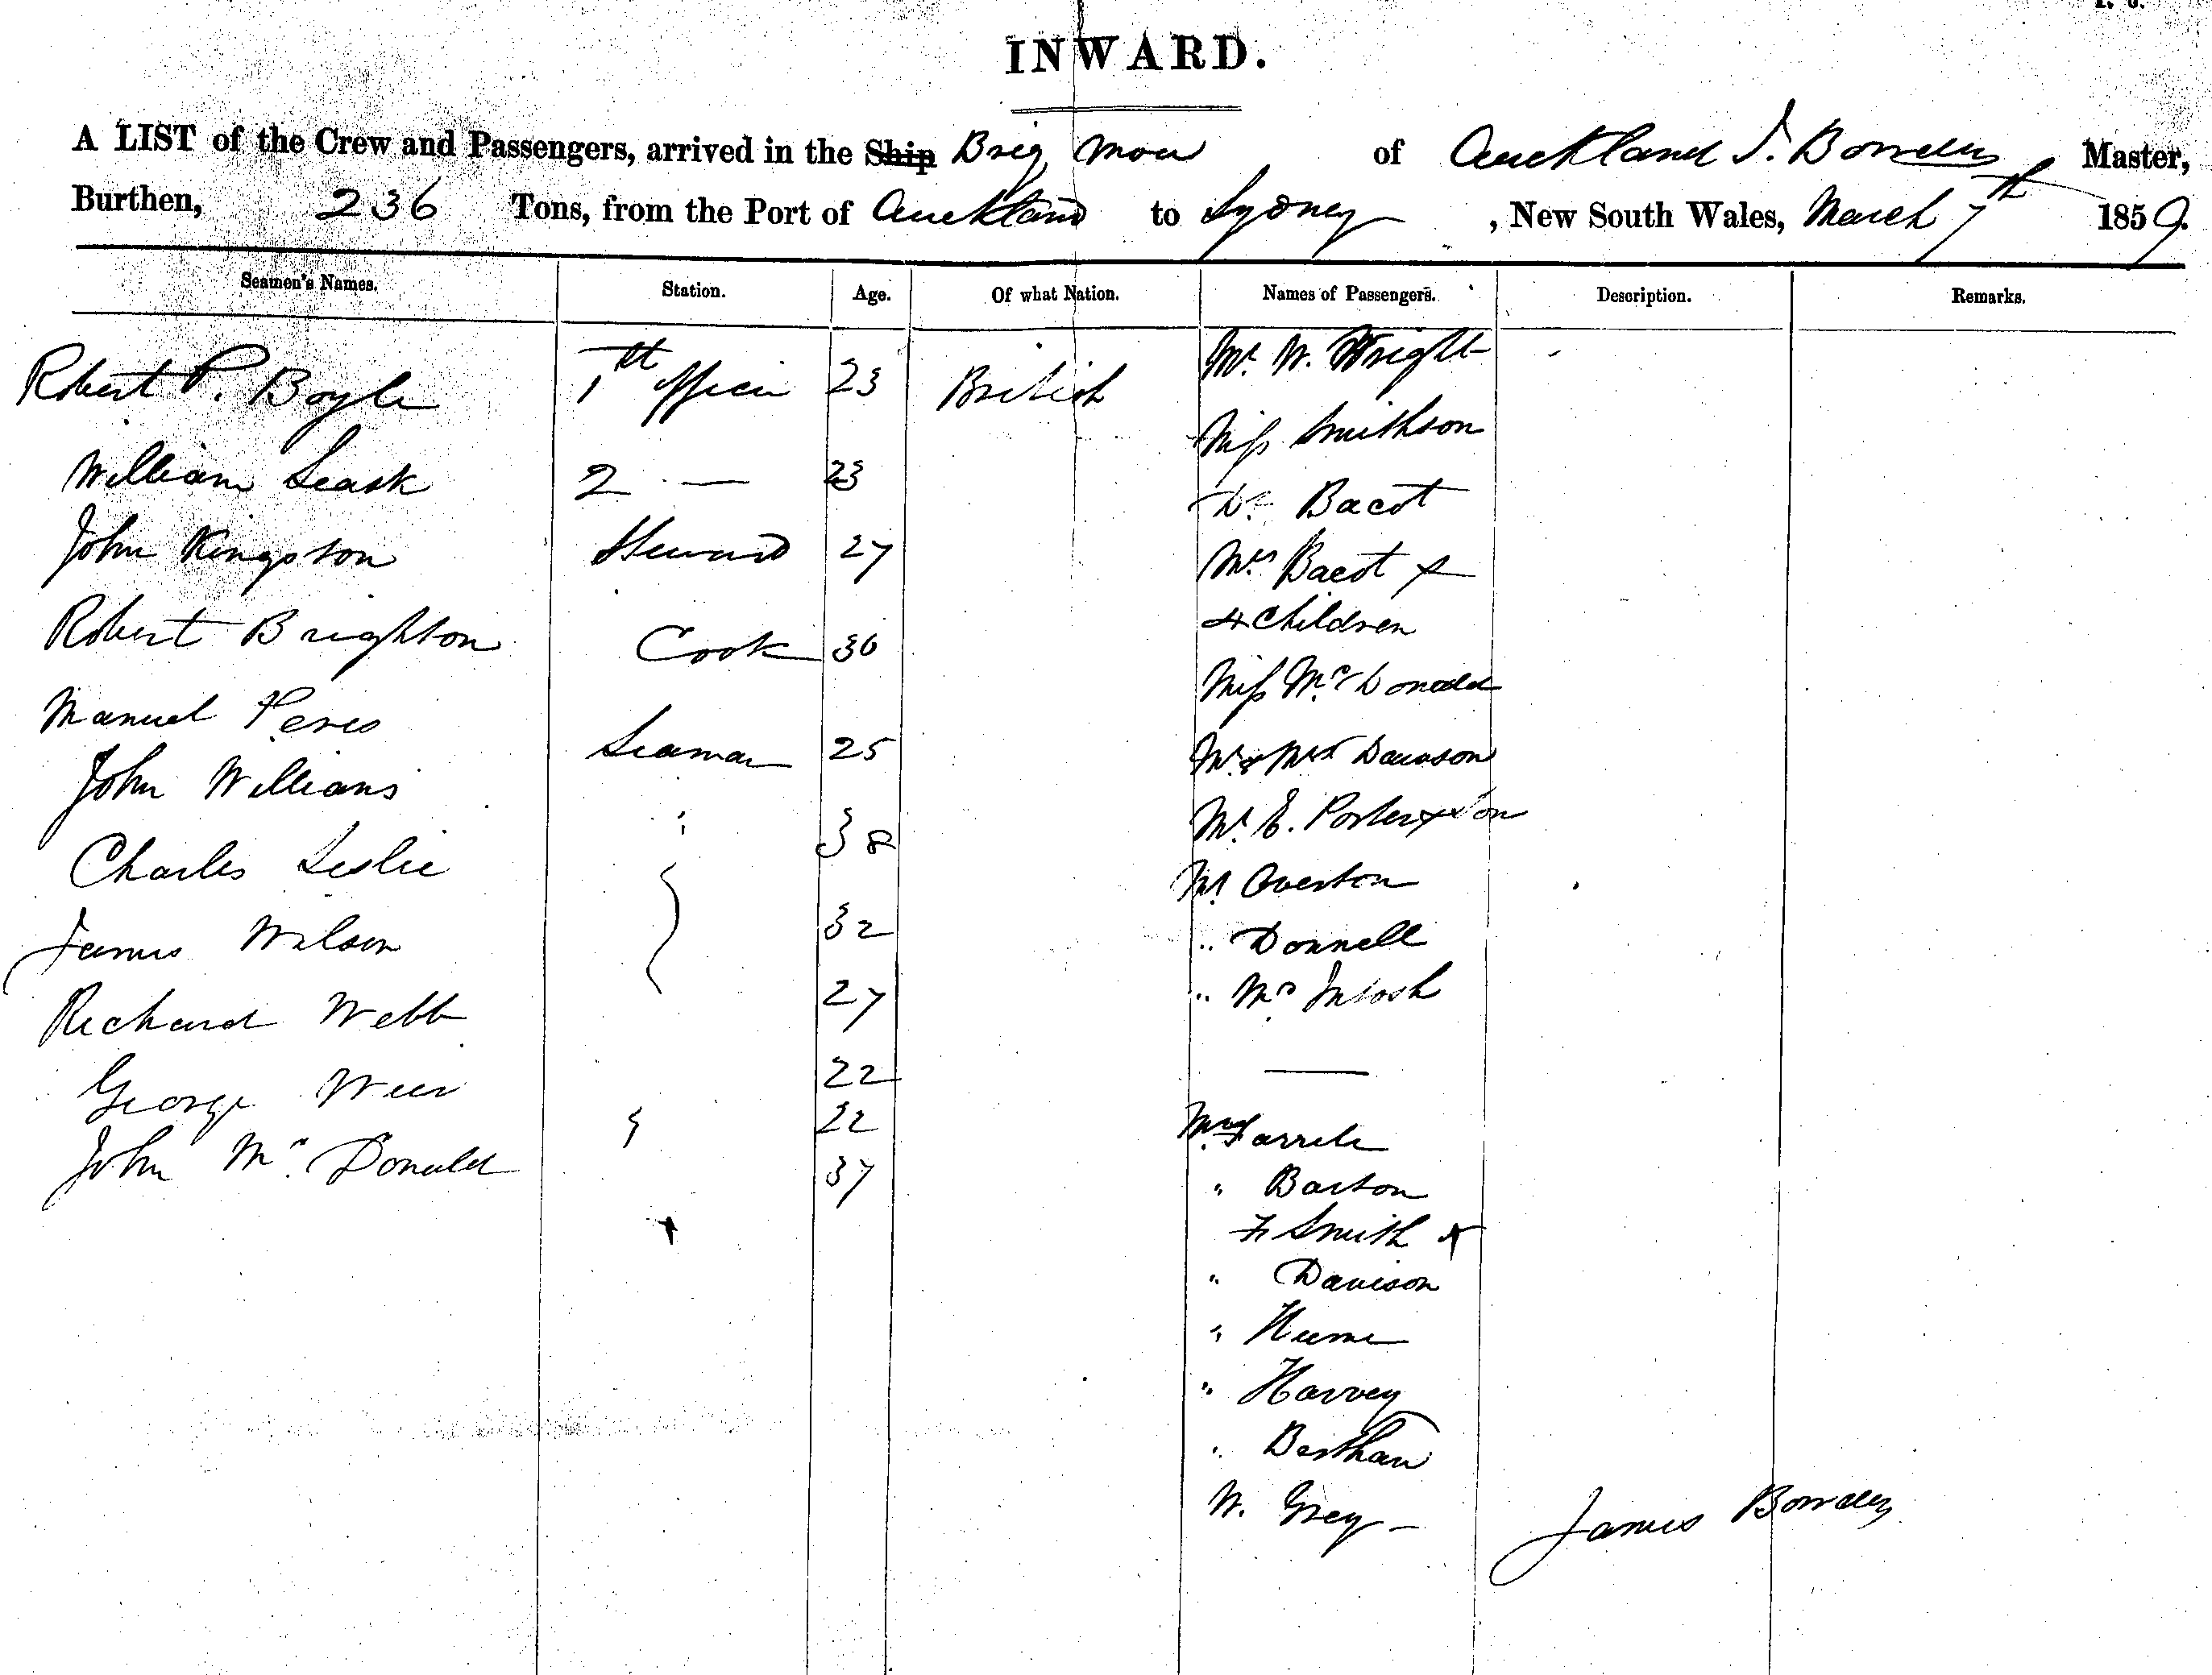 INWARD.
A LIST of the Crew and Passengers, arrived in the Ship Brig Moa of Auckland J. Bowden Master,
Burthen, 236 Tons, from the Port of Auckland to Sydney, New South Wales, March 7th 1859.
Seamen's Names. Station. Age. Of what Nation. Names of Passengers. Description. Remarks.
Robert P. Boyle 1st Officer 23 British Mr. W. Wright
Miss Smithson
William Leask 2 — 23 Dr. Bacot
John Kingston Steward 27 Mrs Bacot &
4 Children
Robert Brighton Cook 36 Miss McDonald
Manuel Peres Seaman 25 Mr & Mrs Dawson
John Williams " 38 Mr. E. Porter & Son
Charles Leslie 32 Mr Overton
" Donnell
James Wilson 27 " Mc Intosh
Richard Webb 22
George Weir 22 Farrele
John Mc Donald 37 " Barton
Smith
" Davison
" Hume
" Harvey
"
W. Grey
James Bowden